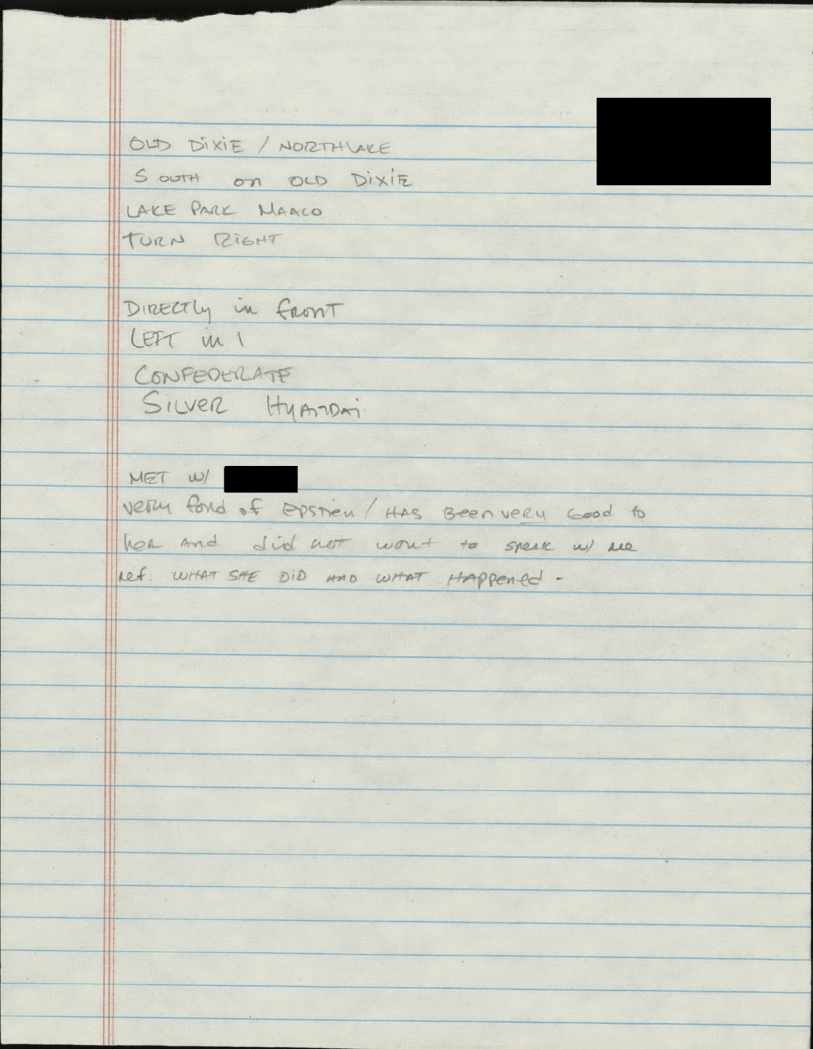 OLD DIXIE / NORTHLAKE
SOUTH on OLD DIXIE
LAKE PARK MAACO
TURN RIGHT
DIRECTLY in fRONT
LEFT in 1
CONFEDERATE
SILVER HYANDAi
MET W/
VERY fond of EPSTIEN / HAS BEEN VERY GOOD to
her AND did not want to SPEAK W/ me
ref. WHAT SHE DID AND WHAT HAPPENED -